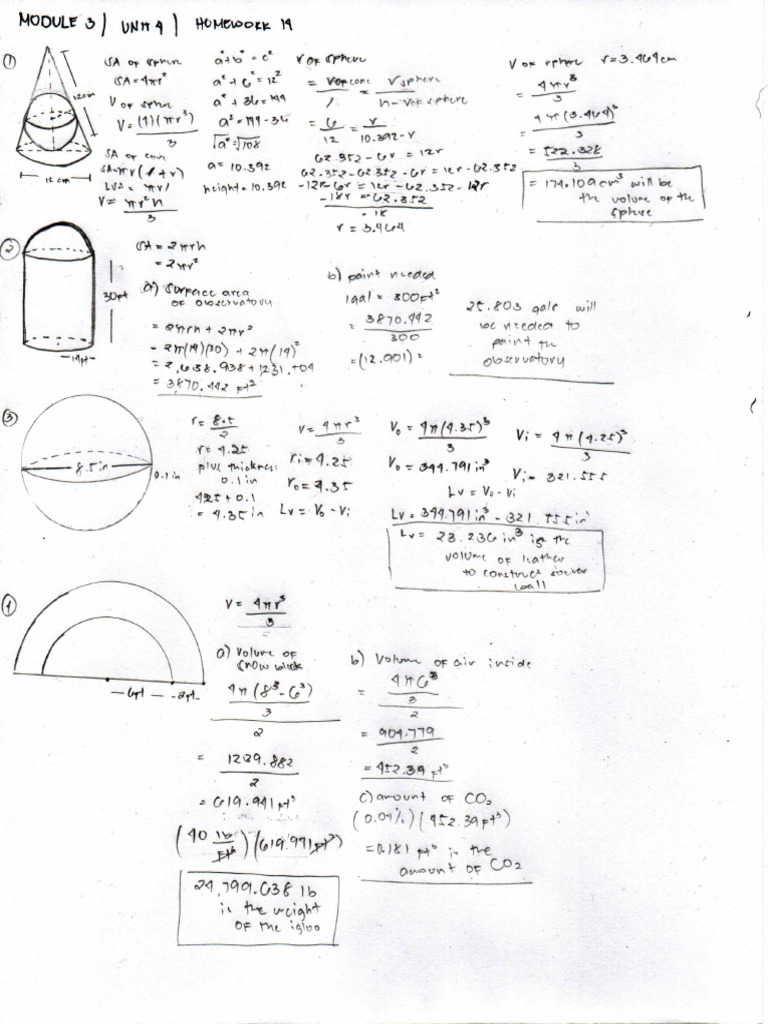 MODULE 3 / UNIT 4 / HOMEWORK 19
①
12cm
12 cm
SA of sphere
SA = 4πr²
V of sphere
V = (4)(πr³)
3
SA of cone
SA = πr(l + r)
LSA = πrl
V = πr²h
3
a² + b² = c²
a² + 6² = 12²
a² + 36 = 144
a² = 144 - 36
√a² = √108
a = 10.392
height = 10.392
V OF sphere
= V of cone = V sphere
l h - r of sphere
= 6 = r
12 10.392 - r
62.352 - 6r = 12r
62.352 - 62.352 - 6r = 12r - 62.352
-12r - 6r = 12r - 62.352 - 12r
-18r = 62.352
-18
r = 3.464
V of sphere r = 3.464cm
= 4πr³
3
= 4π(3.464)³
3
= 522.328
3
= 174.109cm³ will be
the volume of the
sphere
②
30ft
14ft
SA = 2πrh
= 2πr²
a) surface area
of observatory
= 2πrh + 2πr²
= 2π(14)(30) + 2π(14)²
= 2,638.938 + 1231.504
= 3870.442 ft²
b) paint needed
1gal = 300ft²
= 3870.442
300
= (12.901)2
25.803 gals will
be needed to
paint the
observatory
③
8.5 in
0.1 in
r = 8.5
2
r = 4.25
plus thickness
0.1 in
4.25 + 0.1
= 4.35 in
V = 4πr³
3
ri = 4.25
ro = 4.35
Lv = Vo - Vi
Vo = 4π(4.35)³
3
Vo = 344.791in³
Lv = Vo - Vi
Vi = 4π(4.25)³
3
Vi = 321.555
Lv = 344.791in³ - 321.555in³
Lv = 23.236in³ is the
volume of leather
to construct soccer
ball
④
6ft 2ft
V = 4πr³
3
a) volume of
snow block
4π(8³ - 6³)
3
2
= 1239.882
2
= 619.941ft³
(40 lb/ft³)(619.941ft³)
24,797.638 lb
is the weight
of the igloo
b) Volume of air inside
= 4π6³
3
2
= 904.779
2
= 452.39 ft³
c) amount of CO₂
(0.04%)(452.39ft³)
= 0.181 ft³ is the
amount of CO₂